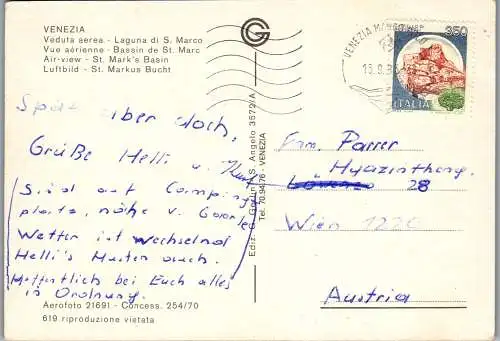 VENEZIA
Veduta aerea - Laguna di S. Marco
Vue aérienne - Bassin de St. Marc
Air-view - St. Mark's Basin
Luftbild - St. Markus Bucht
Spät aber doch,
Grüße Helli u. Kurt
Sind auf Camping
platz, nähe v. Caorle
Wetter ist wechselnd
Helli's Husten auch.
Hoffentlich bei Euch alles
in Ordnung.
Aerofoto 21691 - Concess. 254/70
619 riproduzione vietata
Ediz. G. S. Angelo 3522/A
Tel. 70.94.76 - VENEZIA
VENEZIA
350
ITALIA
Fam. Parrer
Hyazintheng.
28
Wien 1220
Austria